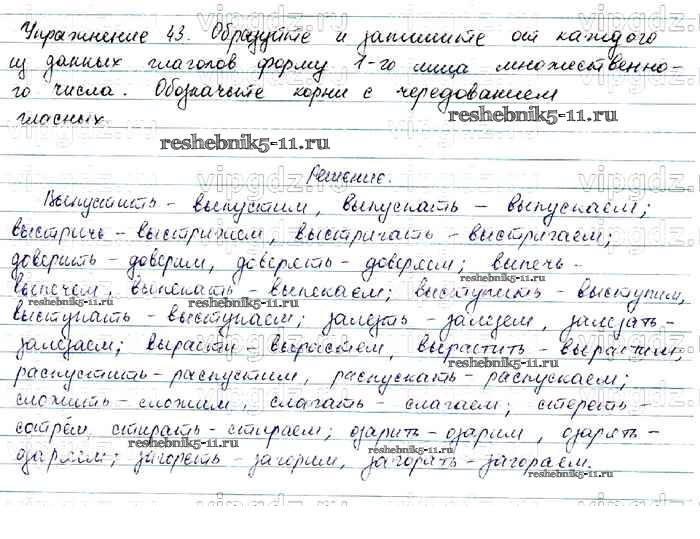 Упражнение 43. Образуйте и запишите от каждого
из данных глаголов форму 1-го лица множественно-
го числа. Обозначьте корни с чередованием
гласных.
reshebnik5-11.ru
Решение.
Выпустить - выпустим, выпускать - выпускаем;
выстричь - выстрижем, выстригать - выстригаем;
доверить - доверим, доверять - доверяем; выпечь -
выпечем, выпекать - выпекаем; выступить - выступим,
выступать - выступаем; залезть - залезем, залезать -
залезаем; вырасти вырастем, вырастить - вырастим;
распустить - распустим, распускать - распускаем;
сложить - сложим, слагать - слагаем; стереть -
сотрём, стирать - стираем; озарить - озарим, озарять -
озаряем; загореть - загорим, загорать - загораем.
reshebnik5-11.ru